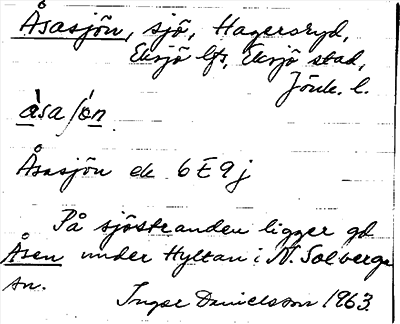 Åsasjön, sjö, Hagersryd,
Eksjö lfs, Eksjö stad,
Jönk. l.
àsa/ón
Åsasjön ek 6E9j
På sjöstranden ligger gd
Åsen under Hyltan i N. Solberga
sn.
Inger Danielsson 1963.